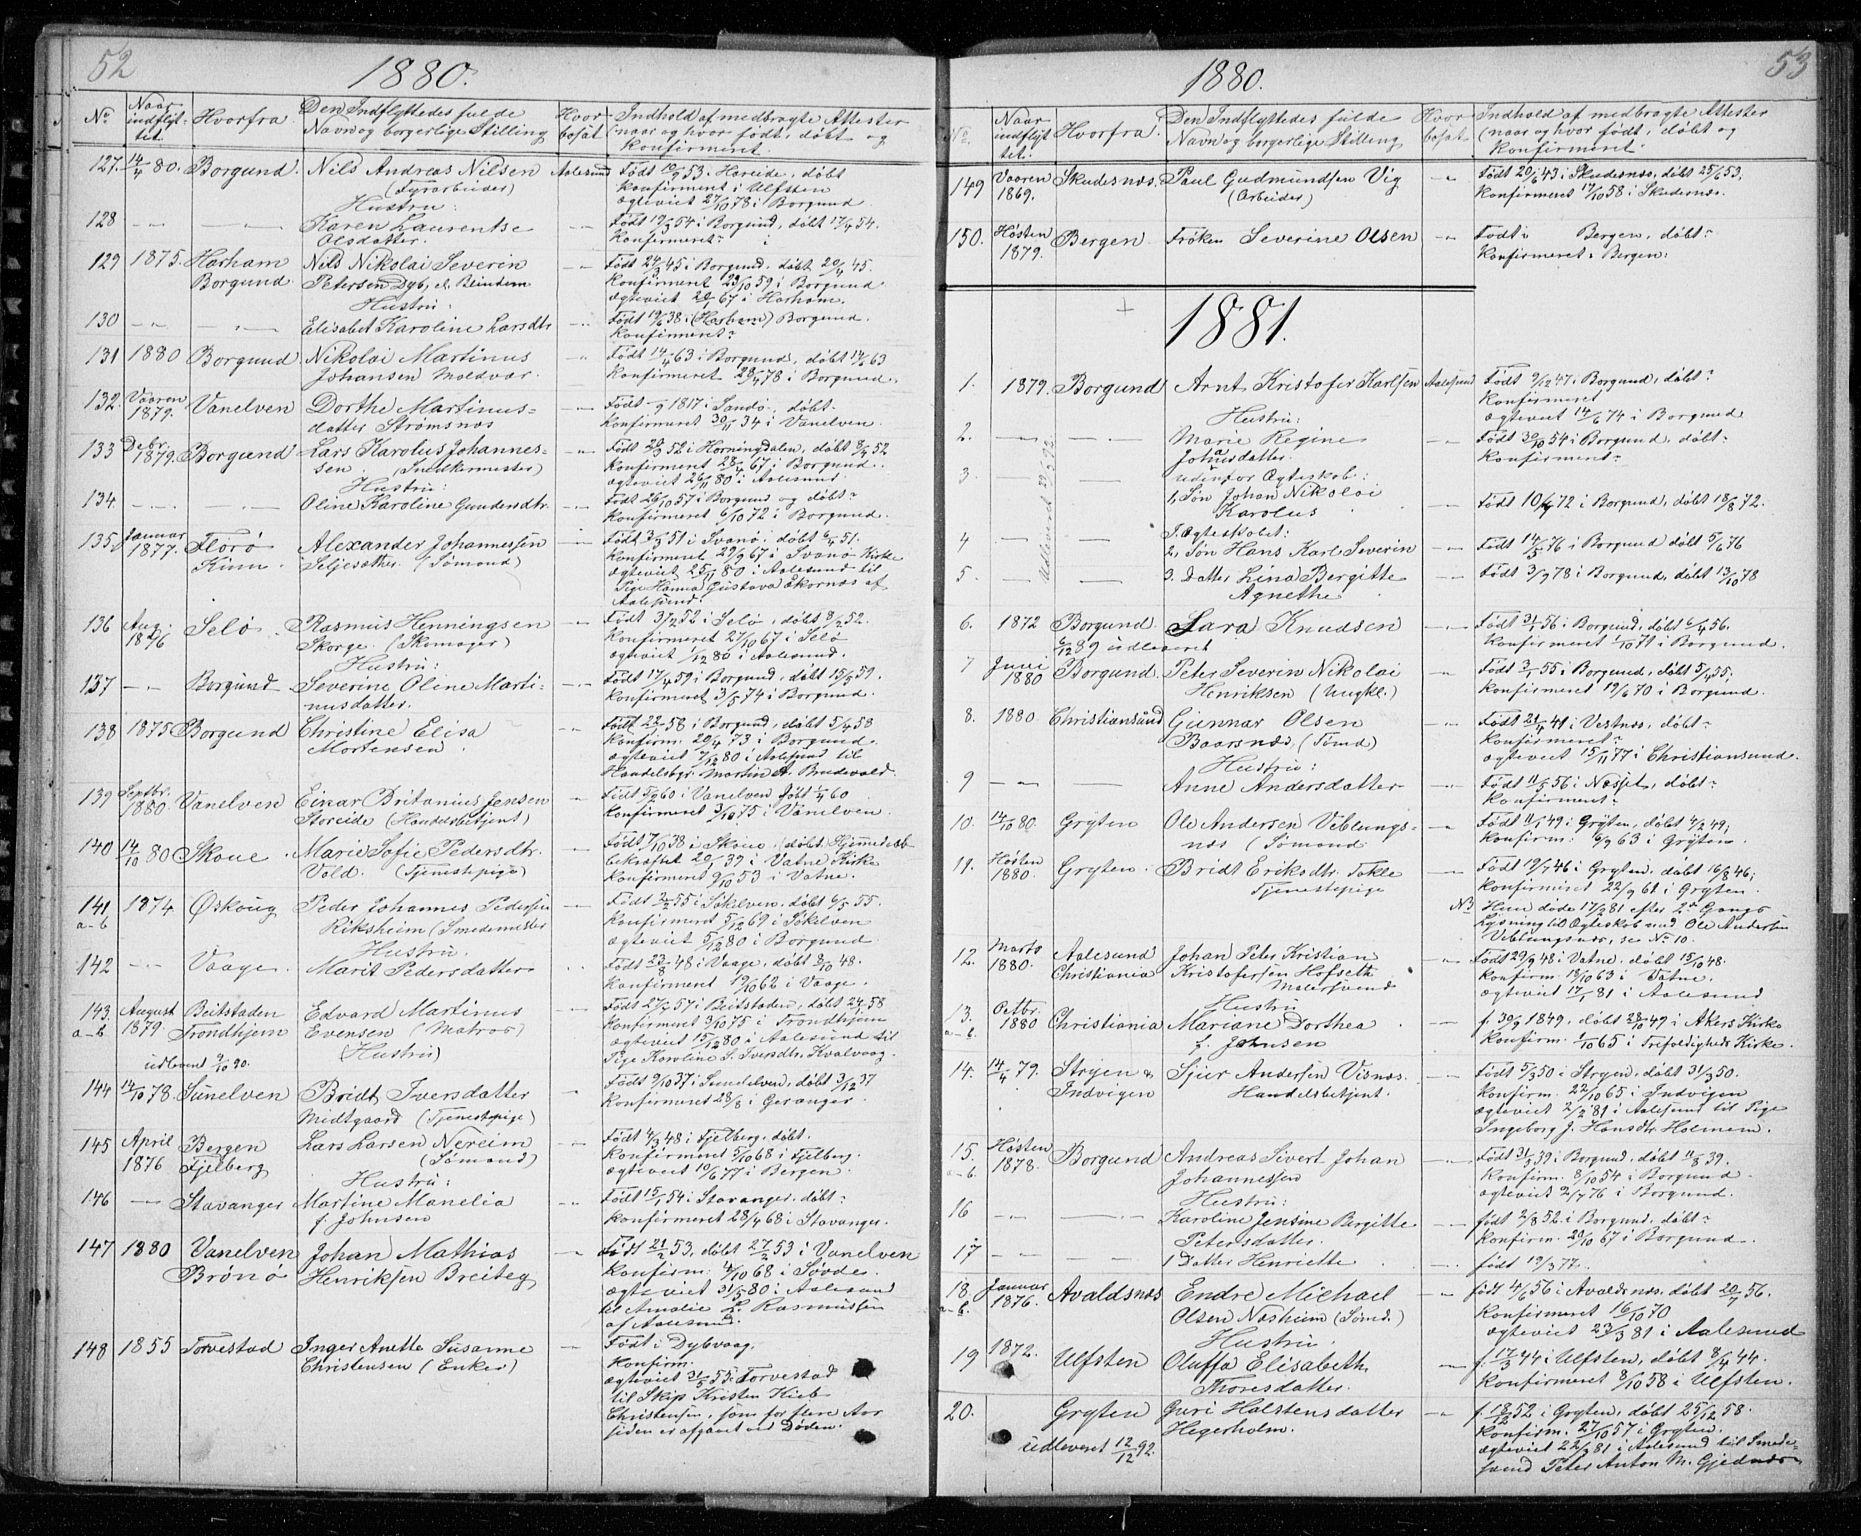 52
1880.
No
Naar indflyttet.
Hvorfra
Den Indflyttedes fulde Navn og borgerlige Stilling
Hvor bosat
Indhold af medbragte Attester (naar og hvor født, døbt og konfirmeret.
127. 14/4 80. Borgund. Nils Andreas Nilsen Aalesund
(Fyrarbeider)
Hustru:
konfirmeret i Ulfsten
ægteviet 27/10 78 i Borgund.
128 -"- -"- Karen Laurentse
Olsdatter.
Født 19/3 54 i Borgund, døbt 17/4 54.
konfirmeret?
129 1875. Harham Nils Nikolai Severin
Borgund Petersen Dyb,
Hustru:
Født 24/2 45 i Borgund, døbt 20/4 45.
konfirmeret 23/10 59 i Borgund
ægteviet 20/1 67 i Harham.
130 -"- -"- Elisabet Karoline Larsdtr
Født 19/6 38 i (Harham) Borgund.
konfirmeret?
131 1880 Borgund Nikolai Martinus
Johansen Moldvær.
Født 14/4 63 i Borgund, døbt 14/6 63
konfirmeret 28/4 78 i Borgund.
132. Vaaren 1879. Vanelven Dorthe Martinus-
datter Strømsnæs
Født 1817 i Sandø, døbt.
konfirmeret 30/11 34 i Vanelven.
133 Debr. 1879. Borgund Lars Karolus Johannes-
sen. (Snedkermester)
Hustru:
Født 20/3 52 i Horningdalen, døbt 8/4 52
konfirmeret 28/4 67 i Borgund.
ægteviet 26/11 80 i Aalesund.
134. -"- -"- Oline Karoline Gundersdtr.
Født 26/10 57 i Borgund og døbt?
konfirmeret 6/10 72 i Borgund.
135. Januar 1877. Florø Alexander Johannessen
Kinn. Seljesæther. (Sømand)
Født 3/3 51 i Svanø, døbt 6/4 51.
konfirmeret 29/9 67 i Svanø Kirke
ægteviet 25/11 80 i Aalesund til
Pige Hanna Gustava Ekornæs af
Aalesund.
136 Aug. 1876 Selø. Rasmus Henningsen
Skorge. (Skomager)
Hustru:
Født 3/2 52 i Selø, døbt 8/2 52.
konfirmeret 27/10 67 i Selø
ægteviet 1/12 80 i Aalesund.
137 -"- Borgund Severine Oline Marti-
nusdatter.
Født 17/4 59 i Borgund, døbt 15/5 59.
konfirmeret 3/5 74 i Borgund.
138 1875 Borgund Christine Elisa
Mortensen.
Født 22/1 58 i Borgund, døbt 5/4 58
Konfirm. 20/4 73 i Borgund
ægteviet 7/12 80 i Aalesund til
Handelsbgr. Martin A. Brudevold.
139 Septbr. 1880 Vanelven Einar Britanius Jensen
Storeide (Handelsbetjent)
Født 5/2 60 i Vanelven døbt 1/4 60
konfirmeret 3/10 75 i Vanelven.
140 14/10 80 Skoue. Marie Sofie Pedersdtr.
Vold. (Tjenestepige)
Født 7/10 38 i Skoue, (døbt Hjemmedaab
bekræftet 20/1 39 i Vatne Kirke
konfirmeret 9/10 53 i Vatne.
141 a-b 1874 Ørskoug Peder Johannes Pedersen
Riksheim (Smedemester
Hustru.
Født 2/2 55 i Søkelven, døbt 6/5 55.
konfirmeret 5/12 69 i Søkelven
ægteviet 5/12 80 i Borgund
142 -"- Vaage. Marit Pedersdatter
Født 23/8 48 i Vaage, døbt 8/10 48.
konfirmeret 9/10 62 i Vaage.
143. a-b August 1879. Beitstaden Edvard Martinus
Trondhjem Evensen (Matros)
(Hustru)
udløvet 9/10 90.
Født 27/4 57 i Beitstaden, døbt 24/5 58
konfirmeret 3/10 75 i Trondhjem
ægteviet 15/12 80 i Aalesund til
Pige Karoline S. Iversdtr. Kvalvaag.
144 14/10 78. Sunelven Bridt Iversdatter
Midtgaard (Tjenestepige)
Født 9/10 37 i Sunelven, døbt 3/12 37
konfirmeret 28/8 i Geranger.
145 April 1876 Bergen Lars Larsen Nereim
Fjelberg (Sømand)
Hustru:
Født 4/3 48 i Fjelberg, døbt.
konfirmeret 5/10 68 i Fjelberg.
ægteviet 10/6 77 i Bergen.
146 -"- Stavanger Martine Manelia
f. Johnsen
Født 15/1 54 i Stavanger. døbt?
konfirmeret 28/4 68 i Stavanger.
147 1880 Vanelven Johan Mathias
Brønø Henriksen Breiteg
Født 21/2 53, døbt 27/2 53 i Vanelven
konfirm. 4/10 68 i Søvde.
ægteviet 31/5 80 i Aalesund
til Amalie L. Rasmussen
af Aalesund.
148 1855 Torvestad Inger Anette Susanne
Christensen (Enke)
Født i Dybvaag
konfirm.
ægteviet 31/5 55 i Torvestad
til Skip. Kristen Hieb
Christensen, som for flere Aar
siden er afgaaet ved Døden.
53
1880.
No.
Naar indflyttet.
Hvorfra.
Den Indflyttedes fulde Navn og borgerlige Stilling
Hvor bosat.
Indhold af medbragte Attester (naar og hvor født, døbt og konfirmeret.
149 Vaaren 1869. Skudesnæs. Paul Gudmundsen Vig
(Arbeider)
Født 20/6 43 i Skudesnæs, døbt 25/6 53,
konfirmeret 17/10 58 i Skudesnæs.
150. Høsten 1879. Bergen Frøken Severine Olsen
Født i Bergen, døbt?
konfirmeret i Bergen:
1881.
1. 1879. Borgund Arnt Kristofer Karlsen Aalesund
Hustru:
Født 9/12 47 i Borgund, døbt?
konfirmeret
ægteviet 14/6 74 i Borgund
2. -"- -"- Marie Regine
Johnsdatter.
Født 30/10 54 i Borgund, døbt?
konfirmeret?
3 udenfor Ægteskab:
1, Søn Johan Nikolai
Karolus
Født 10/7 72 i Borgund, døbt 18/8 72.
Udleveret 22/5 92
4 I Ægteskabet:
2, Søn Hans Karl Severin
Født 14/5 76 i Borgund døbt 5/6 76
5. 3. Datter Lina Bergitte
Agnethe.
Født 3/9 78 i Borgund, døbt 13/10 78
6. 1872 Borgund Lara Knudsen
6/12 89 udleveret
Født 31/1 56 i Borgund, døbt 6/4 56.
konfirmeret 1/10 71 i Borgund.
7 Juni 1880 Borgund Peter Severin Nikolai
Henriksen (Ungkl.)
Født 3/1 55 i Borgund, døbt 5/4 55,
konfirmeret 19/6 70 i Borgund.
8. 1880. Christiansund Gunnar Olsen
Baarsnæs, (Sømd)
Hustru:
Født 21/4 41 i Vestnæs, døbt?
konfirmeret?
ægteviet 15/11 77 i Christiansund.
9 -"- Anne Andersdatter
Født 11/5 56 i Næsset, døbt?
konfirmeret?
10. 14/10 80. Grÿten Ole Andersen Veblungs-
næs (Sømand
Født 11/1 49 i Grÿten, døbt 4/2 49;
konfirm: 6/9 63 i Grÿten.
11. Høsten 1880. Gryten. Bridt Eriksdtr. Tokle
Tjenestepige
Født 19/7 46 i Gryten, døbt 16/8 46;
konfirmeret 22/9 61 i Gryten.
NB Hun døde 17/2 81 efter 2den Gangs
Lysning til Ægteskab med Ole Andersen
Veblungsnæs, se No 10.
12. Marts 1880. Aalesund Johan Peter Kristian
Christiania Kristofersen Hofseth
Malersvend
Hustru
Født 29/9 48 i Vatne. døbt 15/10 48.
konfirm. 18/10 63 i Vatne.
ægteviet 17/1 81 i Aalesund
13. a-b. Octbr. 1880 Christiania Mariane Dorthea
f. Johnsen
f. 30/9 1849, døbt 28/10 49 i Akers Kirke
Konfirm. 1/10 65 i Trefoldigheds Kirke.
14. 14/4 79. Stryen & Sjur Andersen Visnæs.
Indvigen Handelsbetjent.
Født 5/3 50 i Stryen, døbt 31/3 50.
konfirm. 22/10 65 i Indvigen
ægteviet 2/2 81 i Aalesund til Pige
Ingeborg J. Hansdtr Holmem.
15. a-b. Høsten 1878. Borgund Andreas Sivert Johan
Johannessen
Hustru:
Født 31/3 39 i Borgund, døbt 11/8 39.
Konfirm. 8/10 54 i Borgund
ægteviet 2/7 76 i Borgund.
16 -"- -"- Karoline Jensine Bergitte
Petersdatter.
født 2/8 52 i Borgund. døbt?
Konfirm. 20/10 67 i Borgund.
17 -"- -"- 1 Datter Henriette
født 12/3 77.
18. a-b. Januar 1876. Avaldsnæs Endre Michael
Olsen Næsheim (Sømd.)
Hustru
født 4/6 56 i Avaldsnæs. døbt 20/7 56.
Konfirmeret 16/10 70
ægteviet 23/3 81 i Aalesund
19 1872. Ulfsten Oluffa Elisabeth
Thoresdatter.
f. 17/3 44 i Ulfsten, døbt 8/4 44.
konfirmeret 8/10 58 i Ulfsten.
20. Gryten Guri Halstensdatter
Hegerholm.
udleveret 12/12 92.
f. 18/12 52 i Gryten, døbt 25/12 58.
Konfirm. 27/10 57 i Gryten.
ægteviet 22/3 81 i Aalesund til Smede-
svend Peter Anton M. Gjednæs